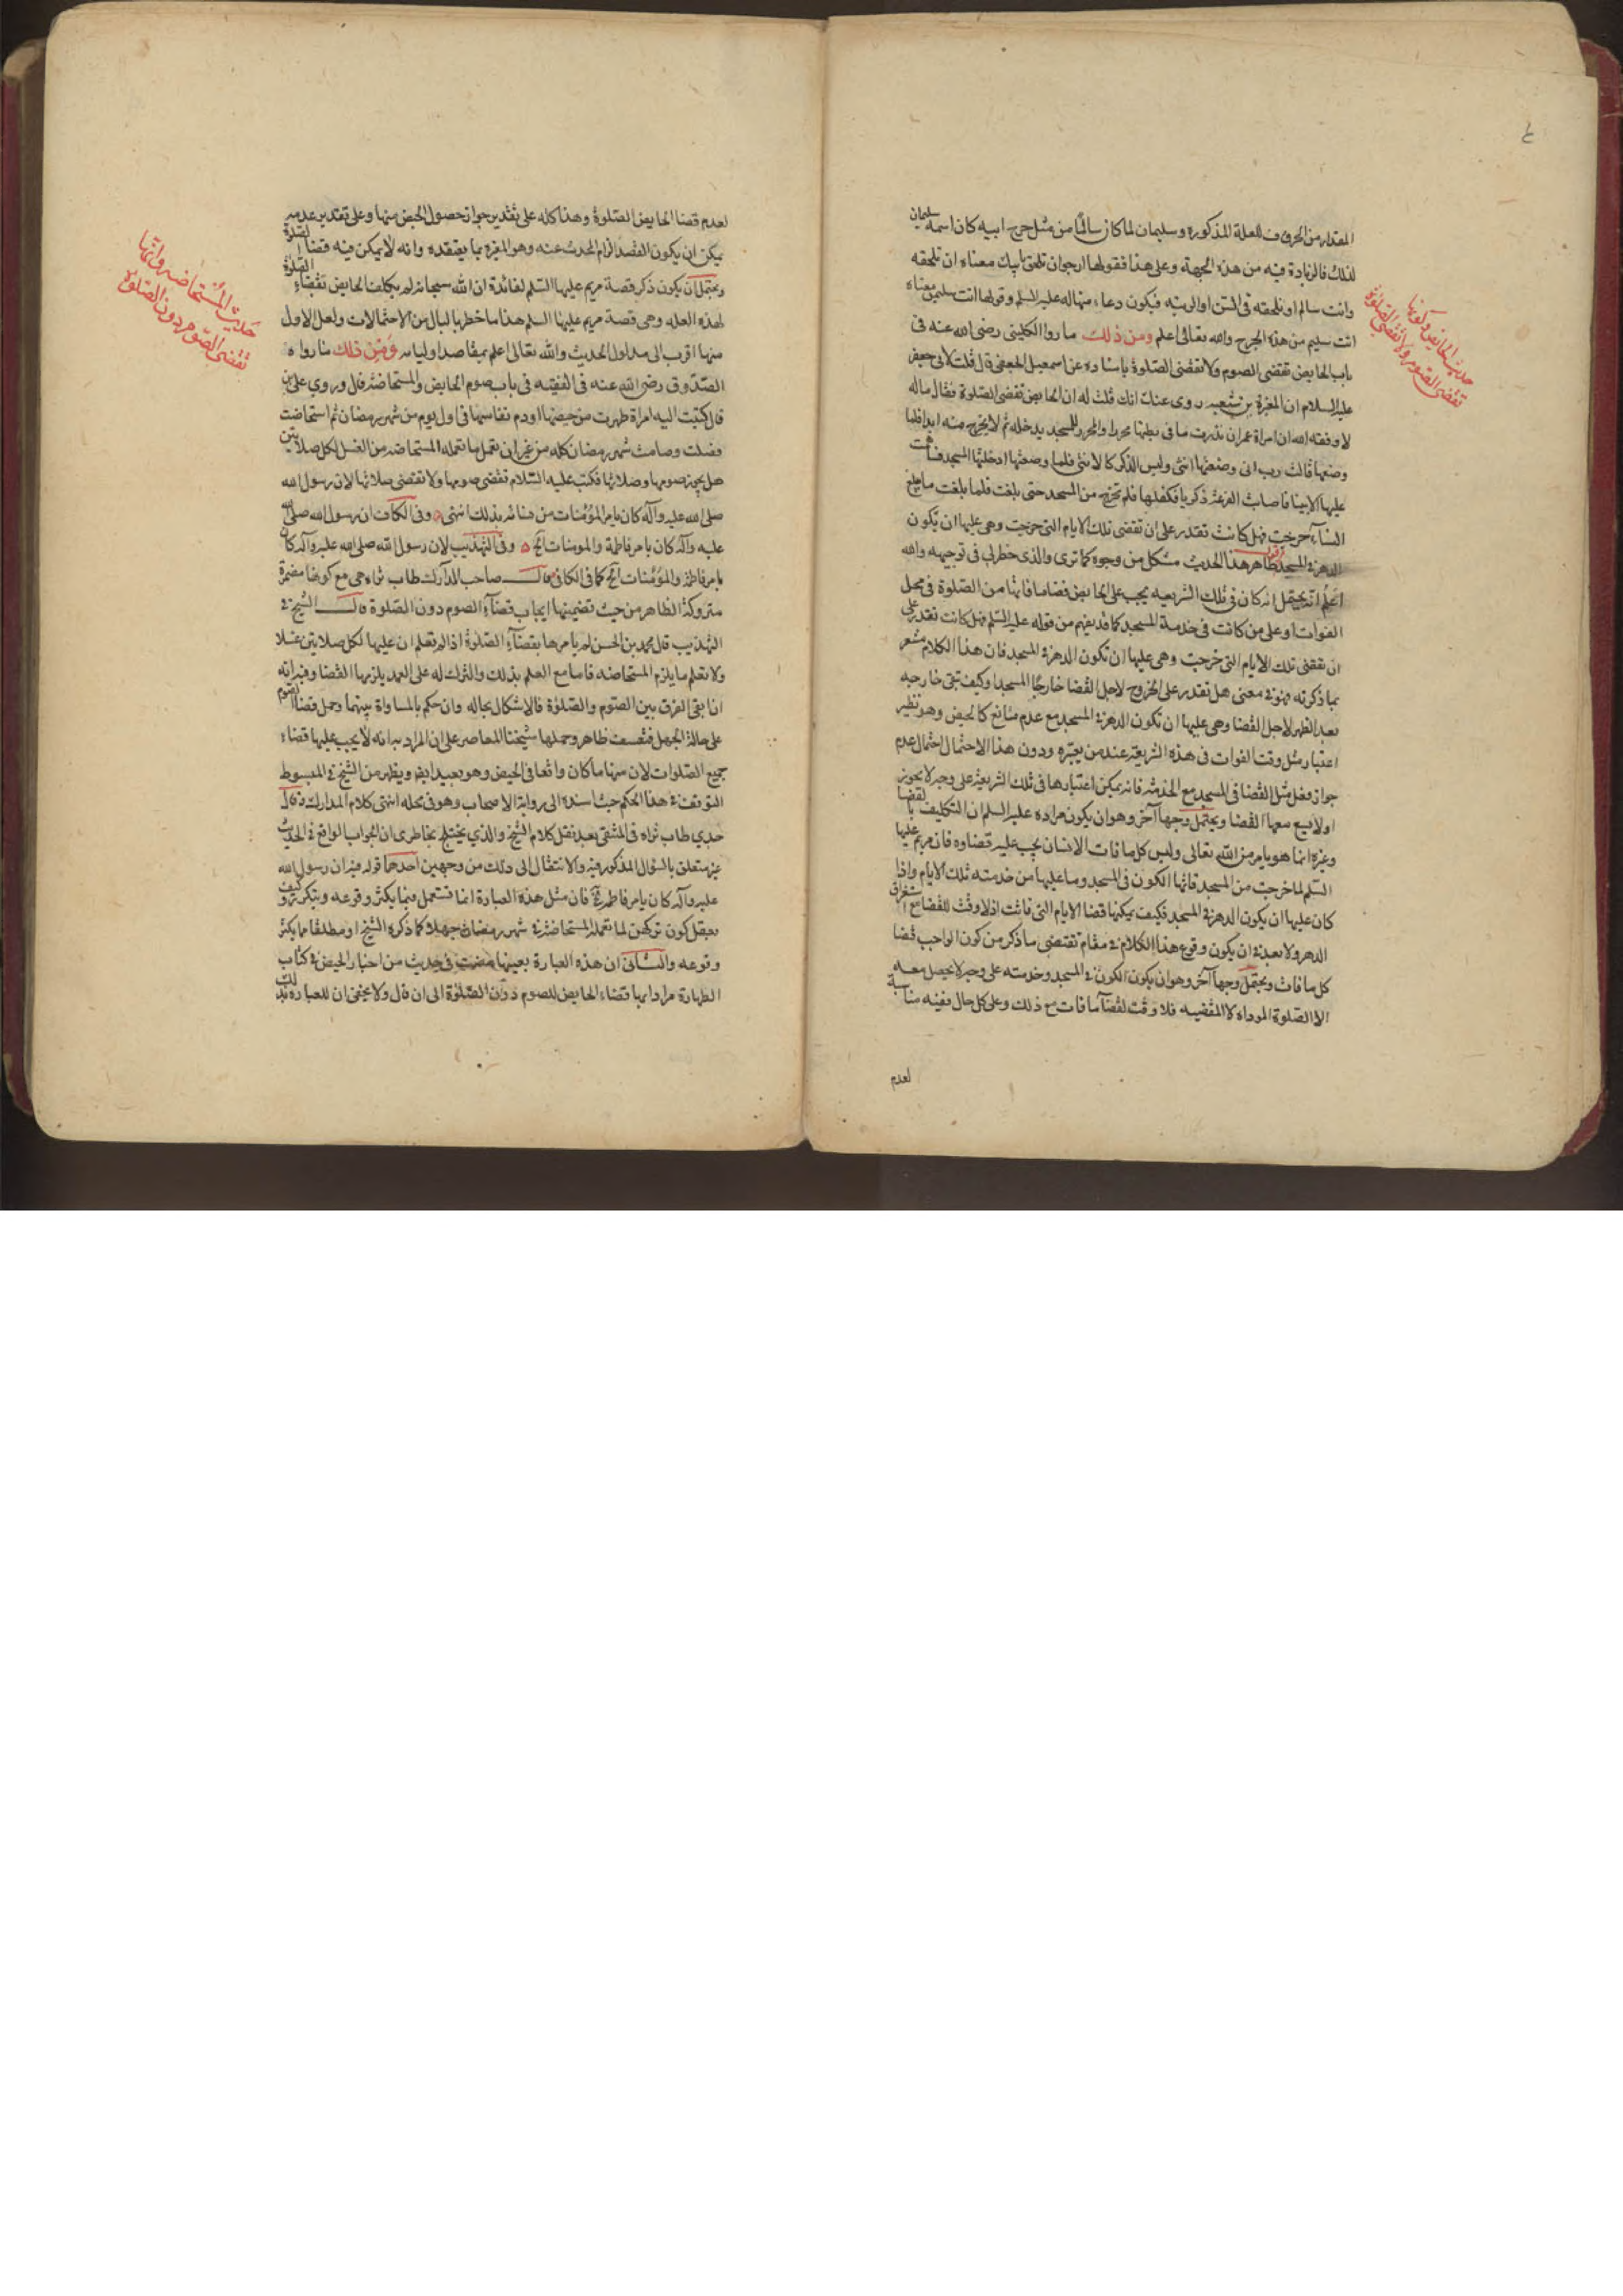 ٤
المقدار من الحروف للعلة المذكورة وسليمان لما كان سالما من مثل جرح ابيه كان اسمه سليمان
لذلك فالزيادة فيه من هذه الجهة وعلى هذا فقولها ارجوان تلحق بابيك معناه ان تلحقه
وانت سالم او تلحقه في السن او الرتبه فيكون دعاء منها له عليه السلم وقولها انت سليمن معناه
انت سليم من هذه الجرح والله تعالى اعلم ومن ذلك ما رواه الكليني رضى الله عنه فى
باب الحايض تقضى الصوم ولا تقضى الصلوة باسناده عن اسمعيل الجعفى قال قلت لابى جعفر
عليه السلام ان المغيرة بن شعبه روى عنك انك قلت له ان الحايض تقضى الصلوة فقال ماله
لا وفقه الله ان امراة عمران نذرت ما فى بطنها محررا والمحرر للمسجد يدخله ثم لا يخرج منه ابدا فلما
وضعتها قالت رب انى وضعتها انثى وليس الذكر كالانثى فلما وضعتها ادخلتها المسجد فساهمت
عليها الانبيا فاصابت القرعة زكريا فكفلها فلم تخرج من المسجد حتى بلغت فلما بلغت ما تبلغ
النساء خرجت فهل كانت تقدر على ان تقضى تلك الايام التى خرجت وهى عليها ان تكون
الدهر فى المسجد اقول ظاهر هذا الحديث مشكل من وجوه كما ترى والذى خطر لى فى توجيهه والله
اعلم انه يحتمل انه كان فى تلك الشريعه يجب على الحايض قضا ما فاتها من الصلوة فى محل
الفوات او على من كانت فى خدمة المسجد كما قد يفهم من قوله عليه السلم فهل كانت تقدر على
ان تقضى تلك الايام التى خرجت وهى عليها ان تكون الدهر فى المسجد فان هذا الكلام مشعر
بما ذكرته فهو فى معنى هل تقدر على الخروج لاجل القضا خارجا المسجد وكيف تبقى خارجه
بعد الطهر لاجل القضا وهى عليها ان تكون الدهر فى المسجد مع عدم مانع كالحيض وهو نظير
اعتبار مثل وقت الفوات فى هذه الشريعة عند من يعتبره ودون هذا الاحتمال احتمال عدم
جواز فعل مثل القضا فى المسجد مع الحدث فانه يمكن اعتبارها فى تلك الشريعة على وجه لا يجوز
اولا يسع معها القضا ويحتمل وجها آخر وهو ان يكون مراده عليه السلم ان التكليف بالقضا
وغيره انما هو بامر من الله تعالى وليس كل ما فات الانسان يجب عليه قضاوه فان مريم عليها
السلم لما خرجت من المسجد فاتها الكون فى المسجد وما عليها من خدمته تلك الايام واذا
كان عليها ان يكون الدهر فى المسجد فكيف يمكنها قضا الايام التى فاتت اذ لا وقت للقضا مع استغراق
الدهر ولا بعد فى ان يكون وقوع هذا الكلام فى مقام تقتضى ما ذكر من كون الواجب قضا
كل ما فات ويحتمل وجها آخر وهو ان يكون الكون فى المسجد وخدمته على وجه لا يحصل معه
الا الصلوة المؤداه لا المقضيه فلا وقت لقضا ما فات مع ذلك وعلى كل حال ففيه مناسبة
لعدم
حديث الحايض وكونها
تقضى الصوم ولا تقضى الصلوة
لعدم قضا الحايض الصلوة وهذا كله على تقدير جواز حصول الحيض منها وعلى تقدير عدمه
يمكن ان يكون القصد الزام المحدث عنه وهو المغيرة بما يعتقده وانه لا يمكن فيه قضا الصلوة
ويحتمل ان يكون ذكر قصة مريم عليها السلم لفائدة ان الله سبحانه لم يكلف الحايض بقضاء الصلوة
لهذه العله وهى قصة مريم عليها السلم هذا ما خطر بالبال من الاحتمالات ولعل الاول
منها اقرب الى مدلول الحديث والله تعالى اعلم بمقاصد اوليائه ومن ذلك ما رواه
الصدوق رضى الله عنه فى الفقيه فى باب صوم الحايض والمستحاضة قال وروى على بن
قال كتبت اليه امراة طهرت من حيضها او دم نفاسها فى اول يوم من شهر رمضان ثم استحاضت
فصلت وصامت شهر رمضان كله من غير ان تعمل ما تعمله المستحاضه من الغسل لكل صلاتين
هل يجوز صومها وصلاتها فكتب عليه السلام تقضى صومها ولا تقضى صلاتها لان رسول الله
صلى الله عليه وآله كان يامر المؤمنات من نسائه بذلك انتهى وفى الكافى ان رسول الله صلى الله
عليه وآله كان يامر فاطمة والمومنات الخ وفى التهذيب لان رسول الله صلى الله عليه وآله كان
يامر فاطمة والمؤمنات الخ كما فى الكافى قال صاحب المدارك طاب ثراه هى مع كونها مضمرة
متروكة الظاهر من حيث تضمينها ايجاب قضآء الصوم دون الصلوة قال الشيخ فى
التهذيب قال محمد بن الحسن لم يامرها بقضآء الصلوة اذا لم تعلم ان عليها لكل صلاتين غسلا
ولا تعلم ما يلزم المستحاضه فاما مع العلم بذلك والترك له على العمد يلزمها القضا وفيه انه
ان بقى الفرق بين الصوم والصلوة فالاشكال بحاله وان حكم بالمساواة بينهما وحمل قضا الصوم
على حالة الجهل فتعسف ظاهر وحملها شيخنا المعاصر على ان المراد به انه لا يجب عليها قضاء
جميع الصلوات لان منها ما كان واقعا فى الحيض وهو بعيد ايضا ويظهر من الشيخ فى المبسوط
التوقف فى هذا الحكم حيث اسنده الى رواية الاصحاب وهو فى محله انتهى كلام المدارك وقال
جدي طاب ثراه فى المنتقى بعد نقل كلام الشيخ والذي يختلج بخاطرى ان الجواب الواقع فى الحديث
غير متعلق بالسؤال المذكور فيه والانتقال الى ذلك من وجهين احدهما قوله فيه ان رسول الله
عليه وآله كان يامر فاطمة الخ فان مثل هذه العبارة انما تستعمل فيما يكثر وقوعه ويتكرر وكيف
يعقل كون تركهن لما تعمله المستحاضة فى شهر رمضان جهلا كما ذكره الشيخ او مطلقا مما يكثر
وقوعه والثانى ان هذه العبارة بعينها مضت فى حديث من اخبار الحيض فى كتاب
الطهارة مرادا بها قضاء الحايض للصوم دون الصلوة الى ان قال ولا يخفى ان للعبارة بذلك
حديث المستحاضه وانها
تقضى الصوم دون الصلوة